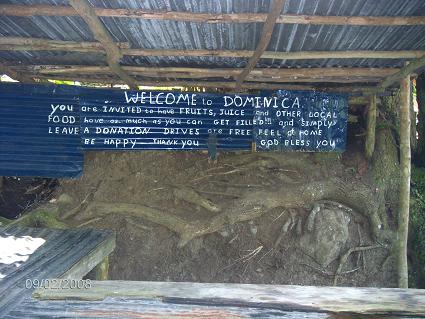 WELCOME to DOMINICA
you are INVITED to have FRUITS, JUICE and OTHER LOCAL
FOOD have as much as you can GET FILLED!!! and SIMPLY
LEAVE A DONATION DRIVES are FREE FEEL at HOME
BE HAPPY THANK YOU GOD BLESS YOU
09/02/2008